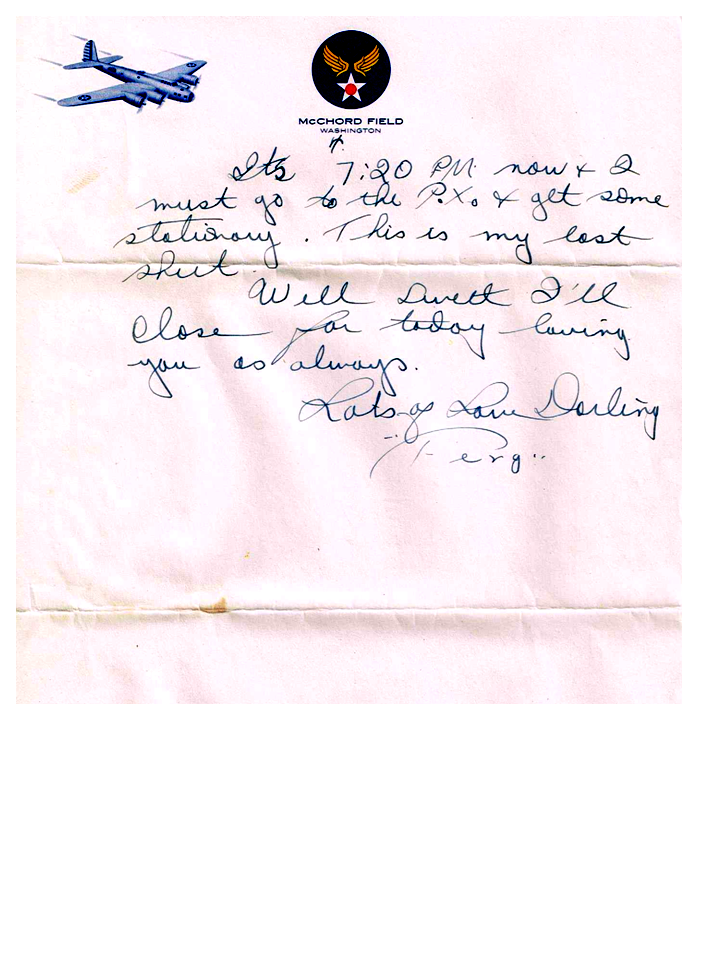 McCHORD FIELD
WASHINGTON
4.
Its 7:20 PM. now & I
must go to the P.X. & get some
stationary. This is my last
sheet.
Well Sweet I'll
close for today loving
you as always.
Lots of Love Darling
Ferg..